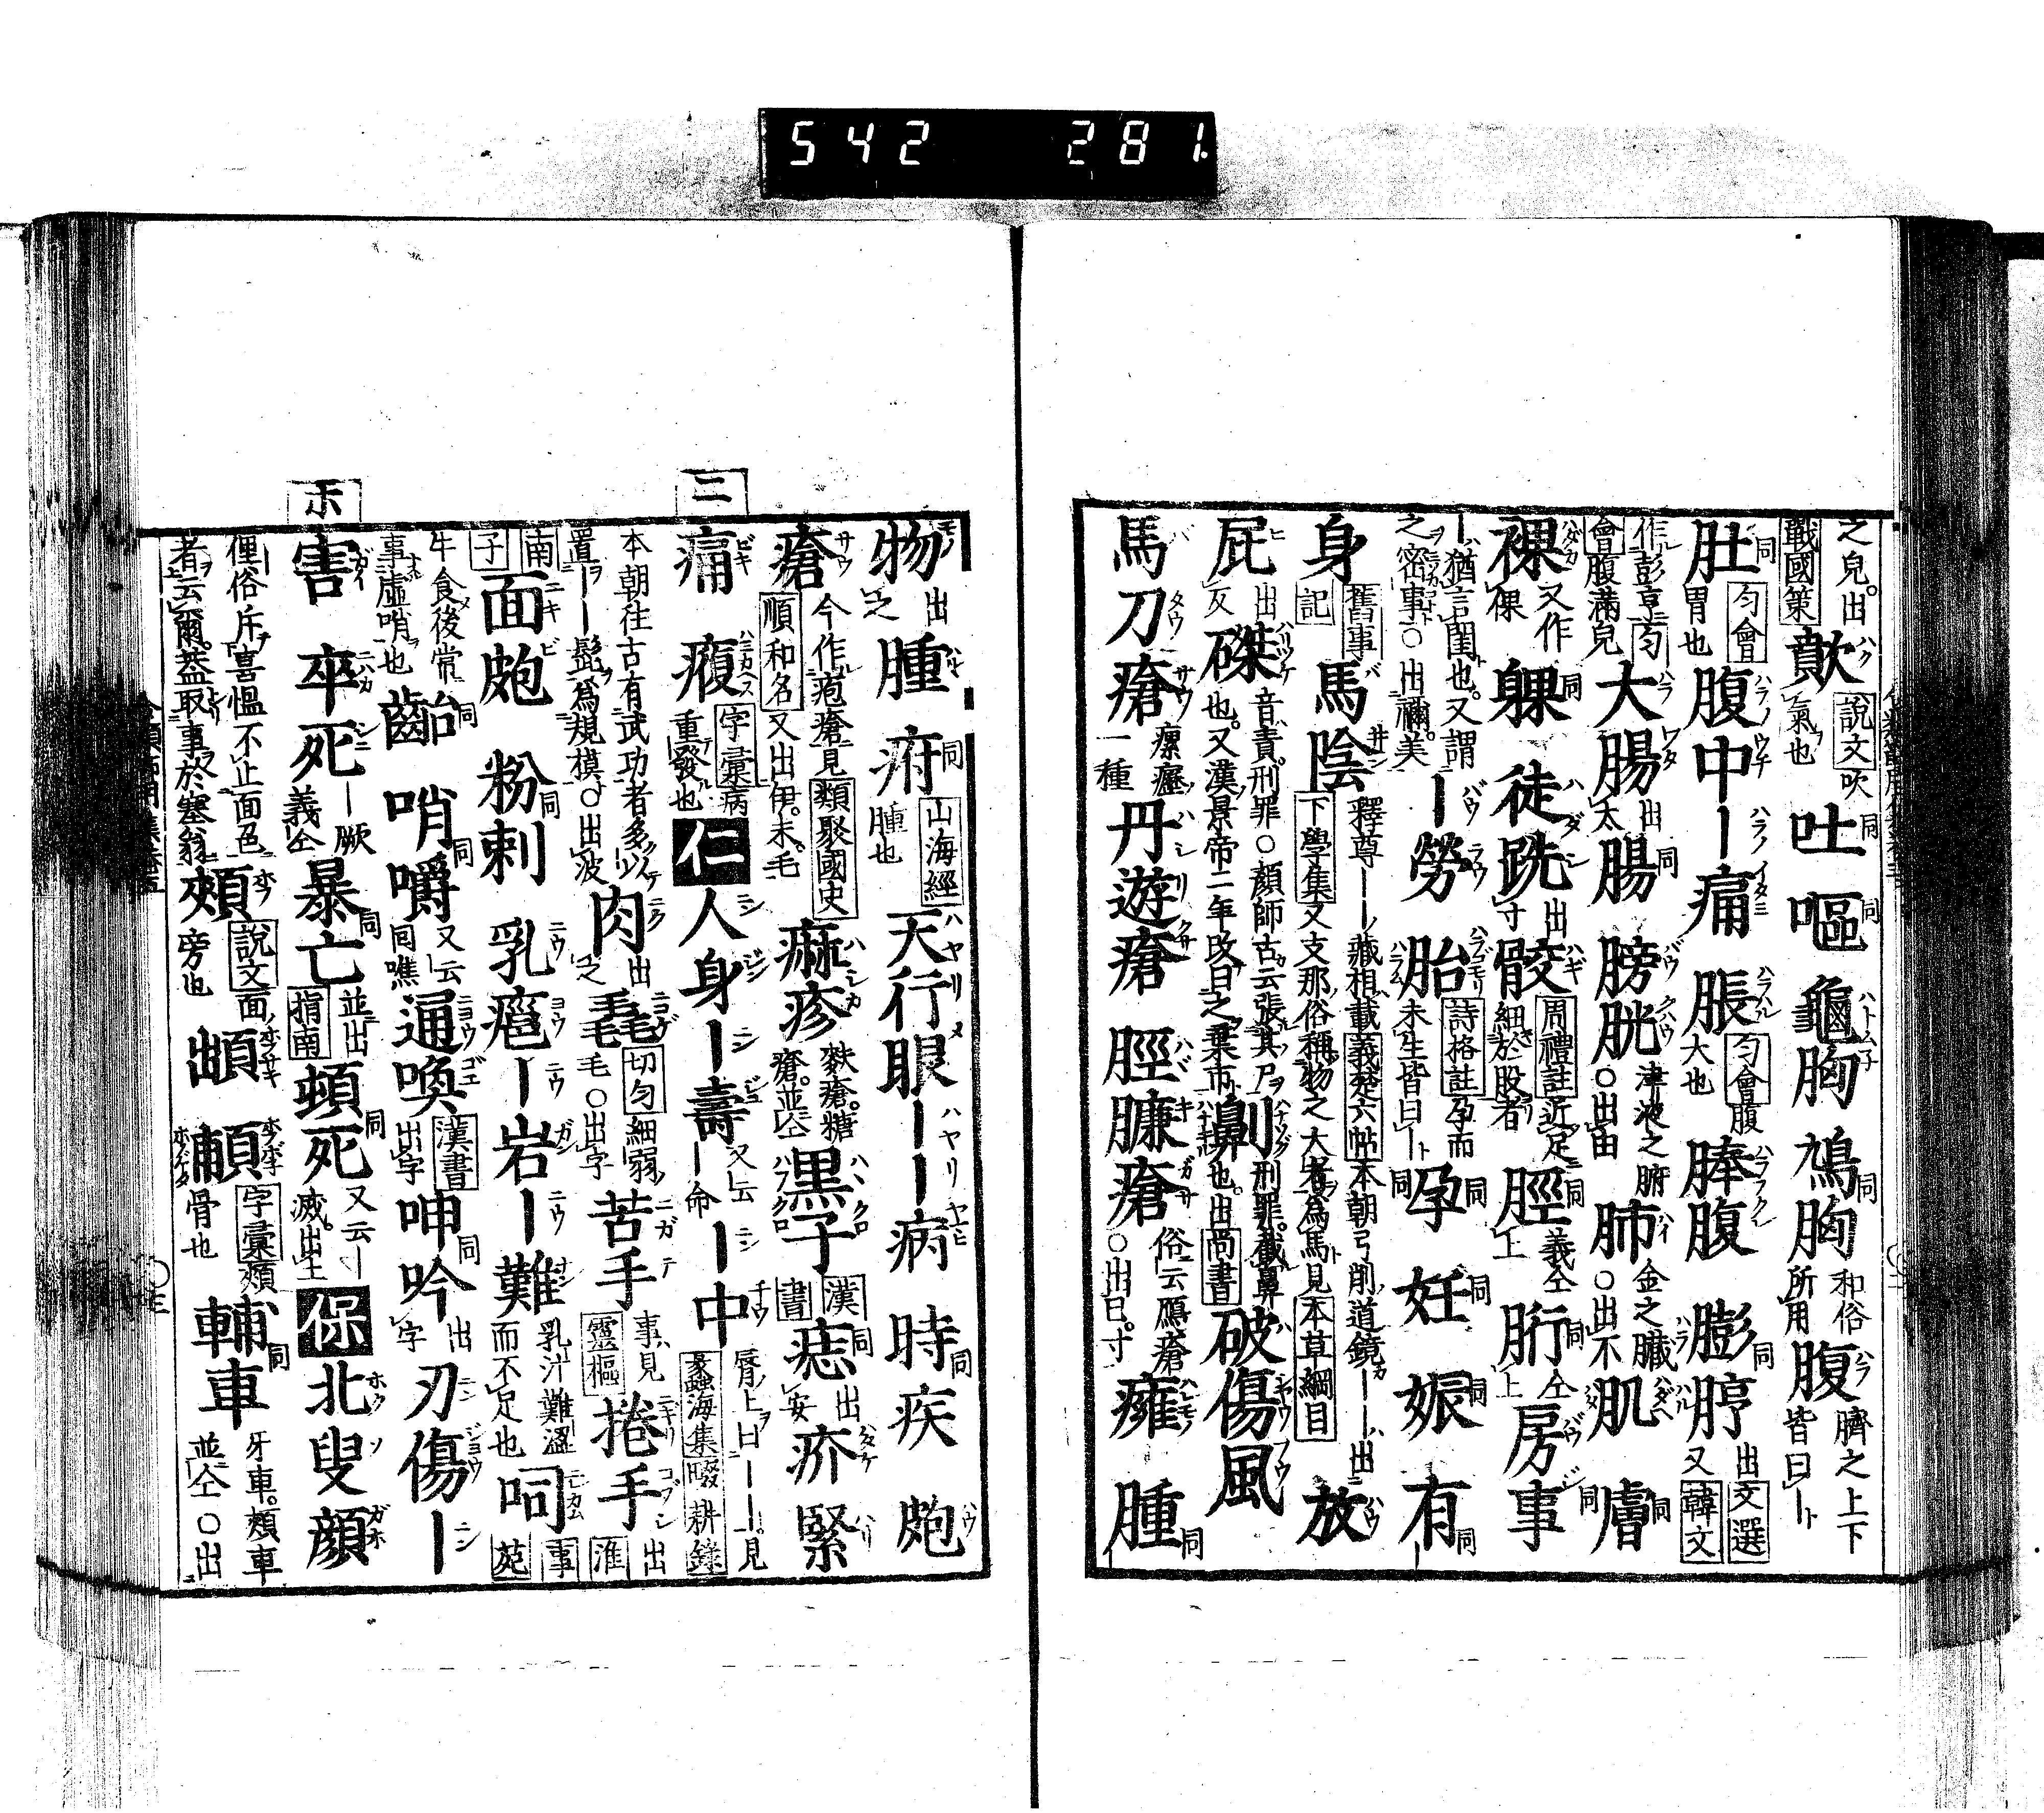 542 281.
之皃。出戰國策 歕ハク 說文吹氣也 吐同 嘔同 龜胸ハトムネ 鳩胸同 和俗所用 腹ハラ 臍之上下皆曰ート
肚同 匀會胃也 腹中ハラノウチ ー痛ハラノイタミ 脹ハラハル 匀會腹大也 腹ハラフクレ 膨脝ハラハル同 出文選又韓文
作彭亨匀會腹滿皃 大腸ハラワタ 出太 腸同 膀胱バウクハウ 津液之腑○出由 肺ハイ 金之臟○出不 肌ハダヘ 膚同
裸ハダカ 又作倮 躶同 徒跣ハダシ 出寸 骹ハギ 周禮註近足細於股者 脛同 義仝上 胻同 仝上 房事バウジ
ー猶言閨也。又謂之密事○出禰。美 ー勞バウラウ 胎ハラゴモリ 詩格註孕而未生皆曰ート 孕同 妊同 娠同 有同
身 舊事記 馬陰バ 釋尊ーー藏相載義楚六帖本朝弓削道鏡ーー出下學集又支那俗稱物之大者為馬見本草綱目 放ハウ
屁ヒ 出 磔ハリツケ 音責。刑罪○顏師古云張其尸也。又漢景帝二年改曰之棄市 劓ハナソグ 刑罪。截鼻也。出尚書 破傷風ハシヤウフウ
馬刀瘡バタウサウ 瘰癧一種 丹遊瘡ハシリクサ 脛臁瘡ハバキガサ 俗云鴈瘡○出巳。寸 癰ハレモノ 腫同
物モノ 出之 腫 疛同 山海經腫也 天行眼ハヤリメ ーー病ハヤリヤミヒ 時疾同 皰ハウ
瘡サウ 今作疱瘡見類聚國史順和名又出伊。未。毛 痲疹ハシカ 麩瘡。糖瘡。並仝 黑子ハハクロ 漢書 痣同 出安 疥ハタケ 緊ハリ
痛 㾼ハニカヘス 字彙病重發也 仁 人身ニンジン ー壽ニンジュ 又云ー命 ー中ニンチウ 脣上曰ーー。見蠡海集啜耕錄
本朝往古有武功者多以置ーー髭為規模○出波 肉ニク 出之 毳ニコゲ 切匀細弱毛○出字 苦手ニガテ 事見靈樞 捲手ニギリコブシ 出淮
南子 面皰ニキビ 粉刺同 乳癰ニウヨウ ー岩ニウガン ー難ニウナン 乳汁難澀而不足也 呞ニレカム 事苑
牛食後常事虛哨也 齝同 哨 嚼同 又云囘噍 通喚ニョウゴエ 漢書出字 呻吟同 出字 刃傷ニンジヨウ ーニン
害ガイ 卒死ニハカジニ ー厥義仝 暴亡同 並出指南 頓死同 又云ー滅。出土 保 北叟顏ホクソガホ
俚俗斥喜慍不止面色者云爾。蓋取事於塞翁 頰ホフ 說文面旁也 䪼ホサキ 䩉ホゲタ 字彙頰骨也 輔車同 牙車。頰車並仝○出
ニ
ホ